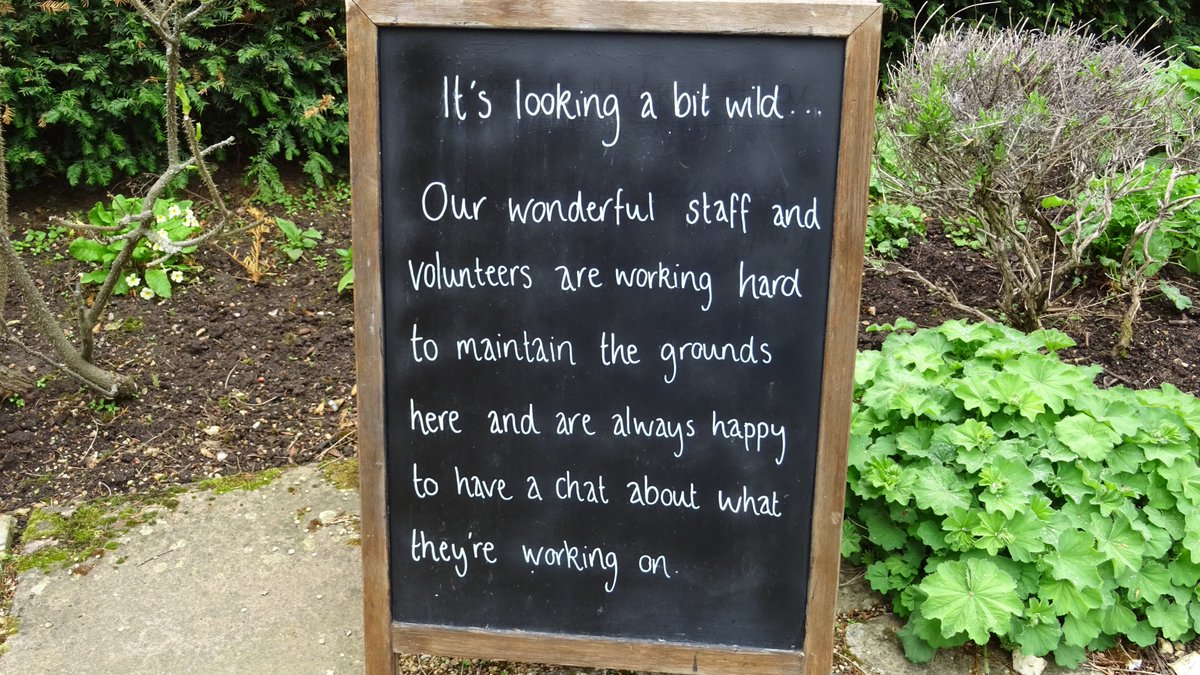 It's looking a bit wild...
Our wonderful staff and
volunteers are working hard
to maintain the grounds
here and are always happy
to have a chat about what
they're working on.